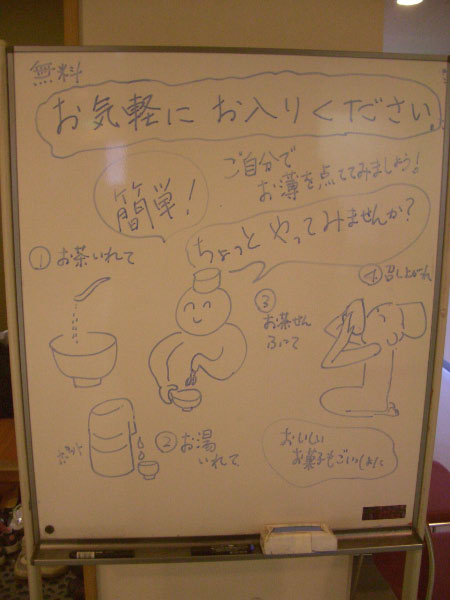 無料
お気軽にお入りください。
簡単!
ご自分で
お薄を点ててみましょう!
ちょっとやってみませんか?
① お茶いれて
② お湯
いれて
③
お茶せん
ふって
④ 召し上がれ
おいしい
お菓子もごいっしょに